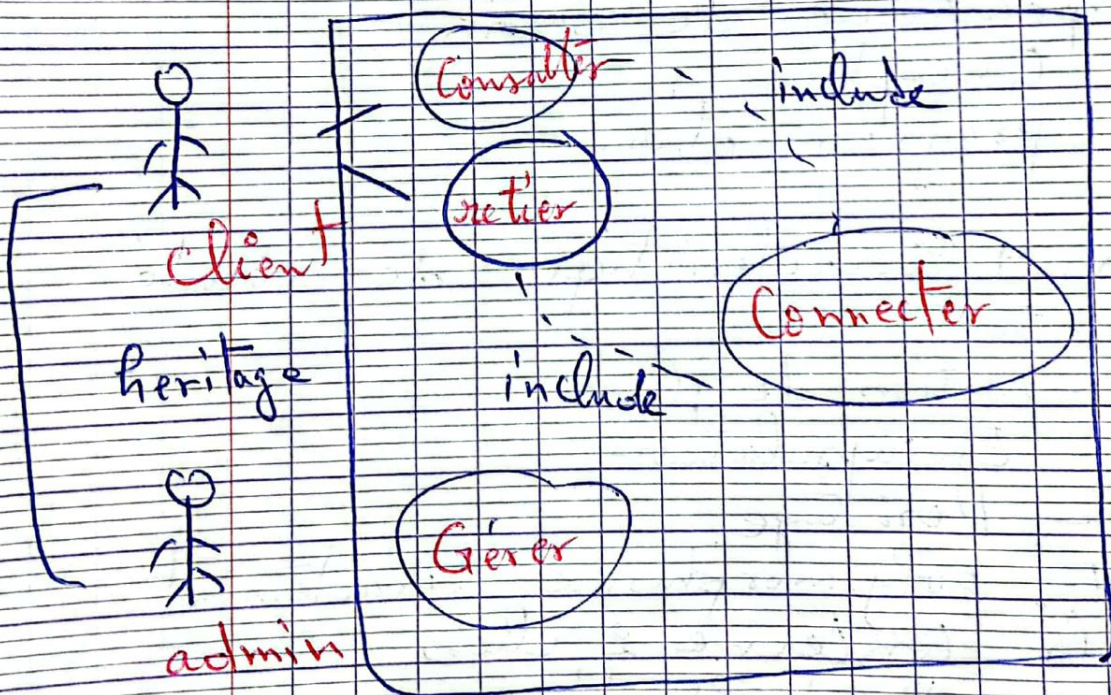 Consulter
include
retier
Client
Connecter
heritage
include
Gérer
admin